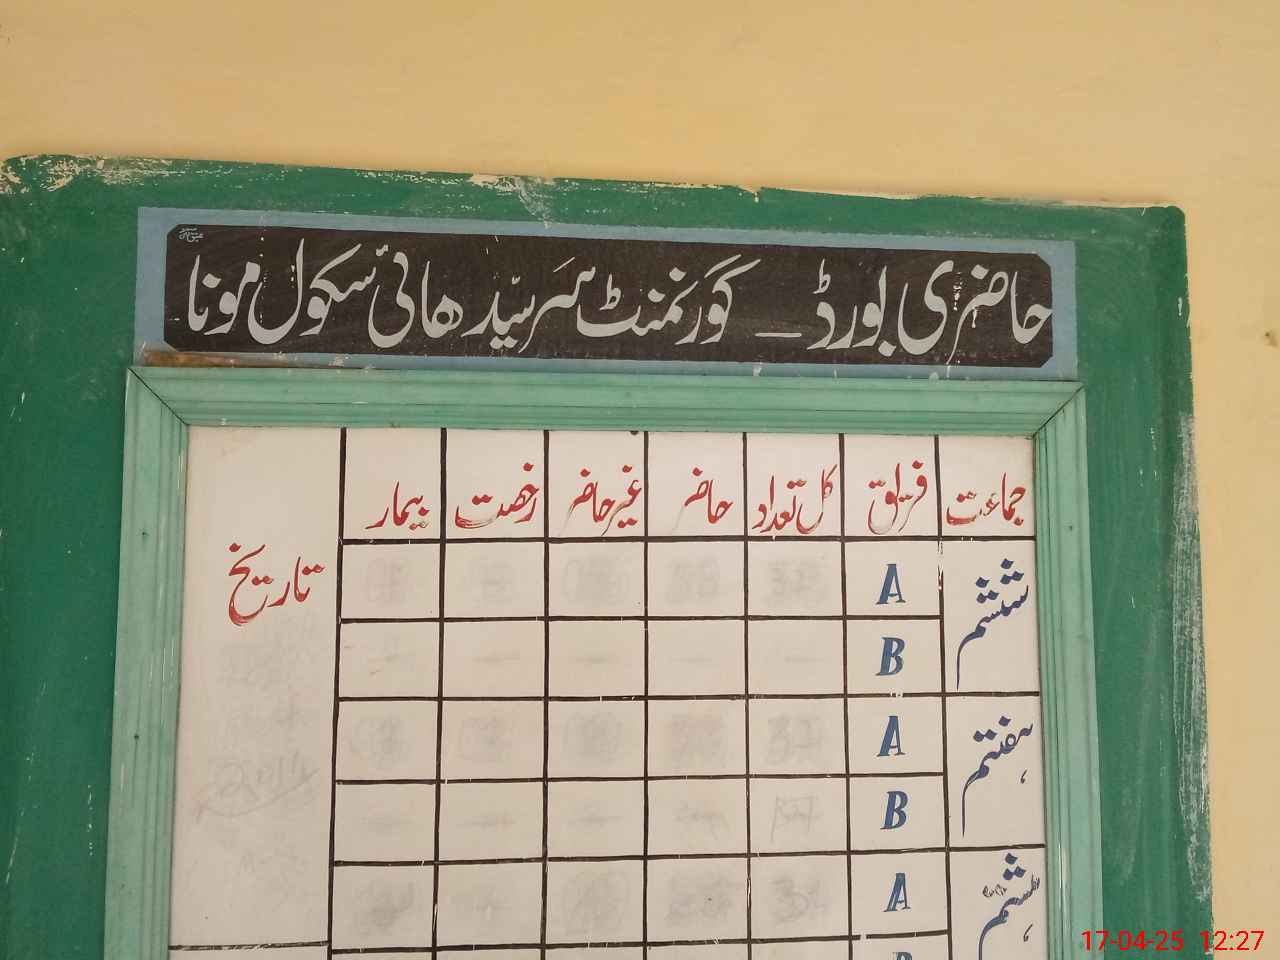 حاضری بورڈ ـ گورنمنٹ سرسیّد ھائی سکول مونا
جماعت فریق کل تعداد حاضر غیر حاضر رخصت بیمار
تاریخ
ششم A
B
ہفتم A
B
ہشتم A
B
17-04-25 12:27